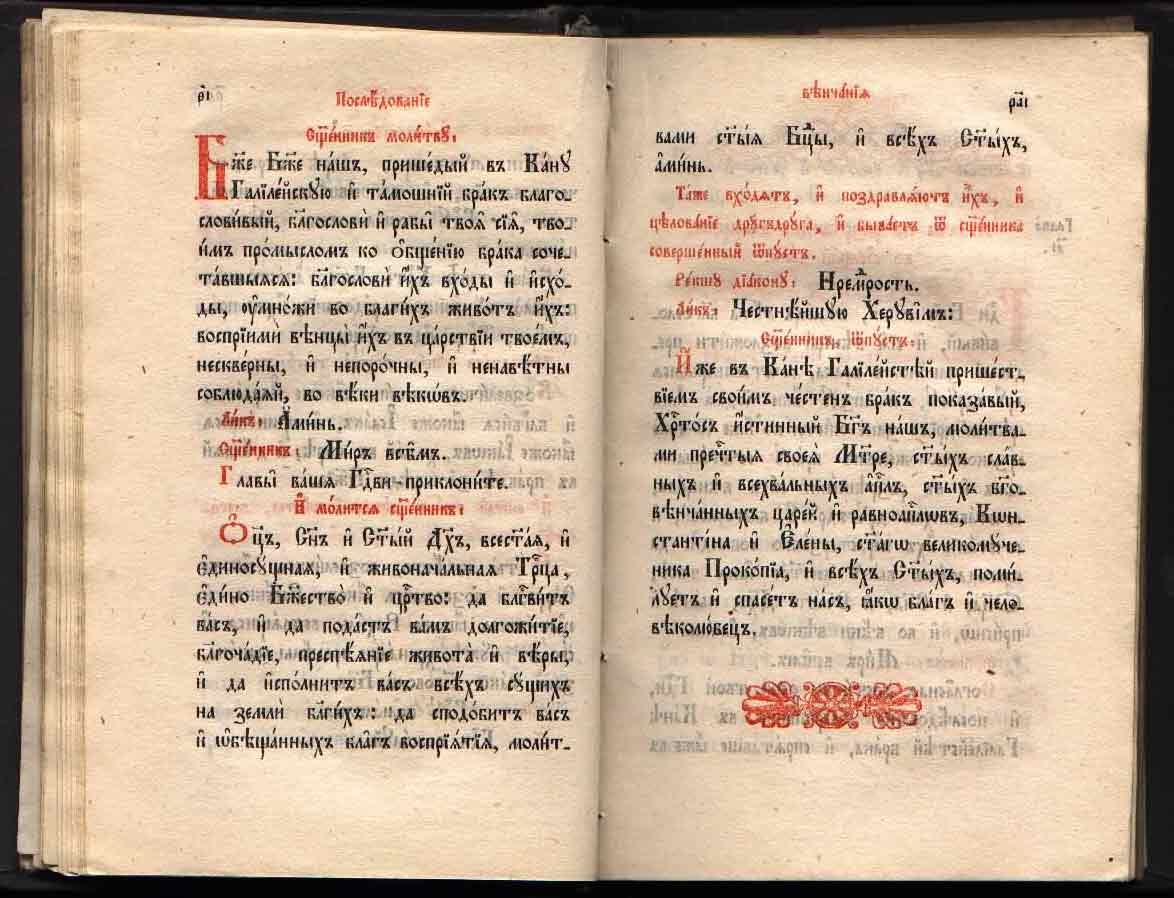 р҃і
Послѣ́дованїе
Сщ҃е́нникъ моли́тву:
Бж҃е Бж҃е на́шъ, прише́дый въ Ка́ну
Галїле́йскую и҆ та́мошнїй бра́къ благо_
слови́вый, бл҃гословѝ и҆ рабы̑ твоѧ̑ сїѧ̑, тво_
и҆́мъ про́мысломъ ко ѻ҆бще́нїю бра́ка соче_
та́вшыѧсѧ: бл҃гословѝ и҆́хъ вхо́ды и҆ и҆схо́_
ды, ᲂу҆мно́жи во благи́хъ живо́тъ и҆́хъ:
воспрїимѝ вѣнцы̀ и҆́хъ въ ца́рствїи твое́мъ,
нескве́рны, и҆ непоро́чны, и҆ ненавѣ́тны
соблюда́ѧй, во вѣ́ки вѣкѡ́въ.
Ли́къ: А҆ми́нь.
Сщ҃е́нникъ: Ми́ръ всѣ̑мъ.
Главы̑ ва́шѧ Гдⷭ҇ви приклони́те.
И҆ мо́литсѧ сщ҃е́нникъ:
Ѻ҆ц҃ъ, Сн҃ъ и҆ Ст҃ы́й Дх҃ъ, всест҃а́ѧ, и҆
є҆диносу́щнаѧ, и҆ живонача́льнаѧ Трⷪ҇ца,
є҆ди́но Бж҃ество̀ и҆ црⷭ҇тво: да блг҃ви́тъ
ва́съ, и҆ да пода́стъ ва́мъ долгожи́тїе,
бл҃гоча́дїе, преспѣ́ѧнїе живота̀ и҆ вѣ́ры,
и҆ да и҆спо́лнитъ ва́съ всѣ́хъ су́щихъ
на землѝ бл҃ги́хъ: да сподо́битъ ва́съ
и҆ ѡ҆бѣща́нныхъ бла̑гъ воспрїѧ́тїѧ, моли́т_
вѣнча́нїѧ
ра҃і
вами ст҃ы́ѧ Бцⷣы, и҆ всѣ́хъ Ст҃ы́хъ,
а҆ми́нь.
Та́же вхо́дѧтъ, и҆ поздравлѧ́ютъ и҆̀хъ, и҆
цѣлова́нїе дру́гъдру́га, и҆ быва́етъ ѿ сщ҃е́нника
соверше́нный ѿпу́стъ.
Ре́кшу дїа́кону: Премⷣрость.
Ли́къ: Честнѣ́йшую Херуві̑мъ:
Сщ҃е́нникъ, ѿпу́стъ.
И҆́же въ Ка́нѣ Галїле́йстѣй прише́ст_
вїемъ свои́мъ че́стенъ бра́къ показа́вый,
Хрⷭ҇то́съ и҆́стинный Бг҃ъ на́шъ, моли́тва_
ми пречⷭ҇тыѧ своеѧ̀ Мт҃ре, ст҃ы́хъ сла́в_
ныхъ и҆ всехва́льныхъ а҆пⷭ҇лъ, ст҃ы́хъ бг҃о_
вѣ́нчанныхъ царе́й и҆ равноап҃лѡвъ, Кѡн_
станті́на и҆ Є҆ле́ны, ст҃а́гѡ великому́че_
ника Проко́пїа, и҆ всѣ́хъ Ст҃ы́хъ, поми́_
луетъ и҆ спасе́тъ на́съ, ꙗ҆́кѡ бла́гъ и҆ чело_
вѣколю́бецъ.